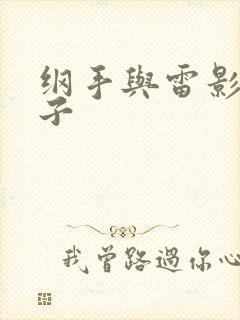 纲手與雷影
子
我曾路過你心